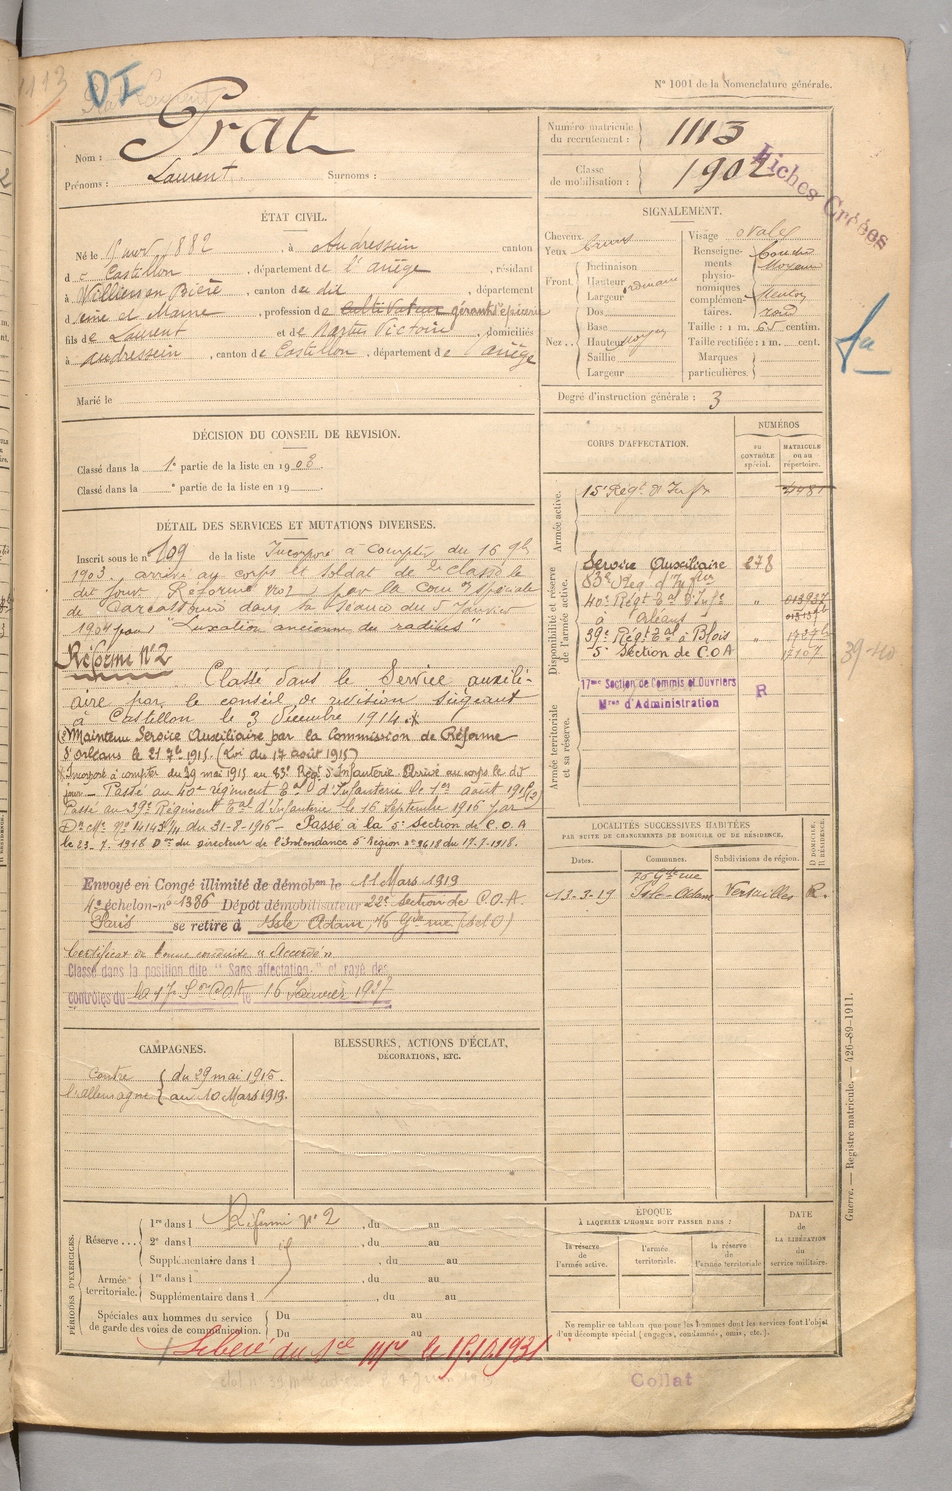 1113
DI
N° 1001 de la Nomenclature générale.
Nom : Prat
Prénoms : Laurent Surnoms :
Numéro matricule du recrutement : 1113
Classe de mobilisation : 1902
Fiches Créées
ÉTAT CIVIL.
Né le nov 1882, à Audressein canton
d e Castillon, département de l'Ariège, résidant
à Villiers en Bière, canton du dit, département
d eine et Marne, profession de cultivateur gérant d'épicerie
fils de Laurent et de Victoire, domiciliés
à Audressein, canton de Castillon, département de l'Ariège
Marié le
SIGNALEMENT.
Cheveux bruns
Yeux
Front. Inclinaison
Hauteur ordinaire
Largeur
Nez.. Dos
Base
Hauteur moyen
Saillie
Largeur
Visage ovale
Renseignements physionomiques complémentaires. bouche moyenne
Menton rond
Taille : 1 m. 65 centim.
Taille rectifiée : 1 m. cent.
Marques particulières.
Degré d'instruction générale : 3
fa
DÉCISION DU CONSEIL DE REVISION.
Classé dans la 1e partie de la liste en 1903.
Classé dans la e partie de la liste en 19
CORPS D'AFFECTATION.
NUMÉROS
au CONTRÔLE spécial.
MATRICULE ou au répertoire.
Armée active.
15e Régt d'Infie 4481
Disponibilité et réserve de l'armée active.
Service Auxiliaire 278
83e Reg. d'Infter
40e Régt Tal d'Infie "
à Orléans
39e Régt Tal à Blois "
5e Section de C.O.A
39-40
Armée territoriale et sa réserve.
17me Section de Commis et Ouvriers R
Mres d'Administration
DÉTAIL DES SERVICES ET MUTATIONS DIVERSES.
Inscrit sous le n° 109 de la liste Incorporé à compter du 16 9b
1903 arrivé au corps et soldat de 2e classe le
dit jour. Réformé n° 2 par la Comon spéciale
de Carcassonne dans sa séance du 5 Janvier
1904 pour "Luxation ancienne du radius"
Réforme N°2
Classé dans le Service auxili-
aire par le conseil de révision siégeant
à Castillon le 3 décembre 1914.
Maintenu Service Auxiliaire par la Commission de Réforme
d'Orléans le 21 7b 1915. (Loi du 17 août 1915)
Incorporé à compter du 29 mai 1915 au 83e Régt d'Infanterie Arrivé au corps le dit
jour. Passé au 40e régiment Tal d'Infanterie le 1er août 1915
Passé au 39e Régiment Tal d'Infanterie le 16 Septembre 1916 par
du 31-8-1916 - Passé à la 5e Section de C.O.A
le 23-7-1918 Don du Directeur de l'Intendance 5e Région n° 9618 du 17.7.1918.
Envoyé en Congé illimité de démobon le 11 Mars 1919
4e échelon - n° 1386 Dépôt démobilisateur 22e Section de C.O.A.
Paris se retire à Isle Adam, 76 Gde rue (S et O)
Certificat de bonne conduite "Accordé"
Classé dans la position dite "Sans affectation" et rayé des
contrôles du la 17e Son COA le 16 Janvier 1927
LOCALITÉS SUCCESSIVES HABITÉES
PAR SUITE DE CHANGEMENTS DE DOMICILE OU DE RÉSIDENCE.
Dates. Communes. Subdivisions de région. D DOMICILE. R RÉSIDENCE.
76 Gde rue
13-3-19 Isle-Adam Versailles R.
CAMPAGNES.
Contre l'Allemagne { du 29 mai 1915.
au 10 Mars 1919.
BLESSURES, ACTIONS D'ÉCLAT,
DÉCORATIONS, ETC.
PÉRIODES D'EXERCICES.
Réserve... 1re dans l Réformé n° 2, du au
2e dans l, du au
Supplémentaire dans l, du au
Armée territoriale. 1re dans l, du au
Supplémentaire dans l, du au
Spéciales aux hommes du service de garde des voies de communication. Du au
Du au
ÉPOQUE
À LAQUELLE L'HOMME DOIT PASSER DANS :
la réserve de l'armée active.
l'armée territoriale.
la réserve de l'armée territoriale
DATE de LA LIBÉRATION du service militaire.
Ne remplir ce tableau que pour les hommes dont les services font l'objet
d'un décompte spécial (engagés, condamnés, omis, etc.).
Guerre. — Registre matricule. — 426-89-1911.
Libéré du Sce Mre le 15.10.1931
Collat